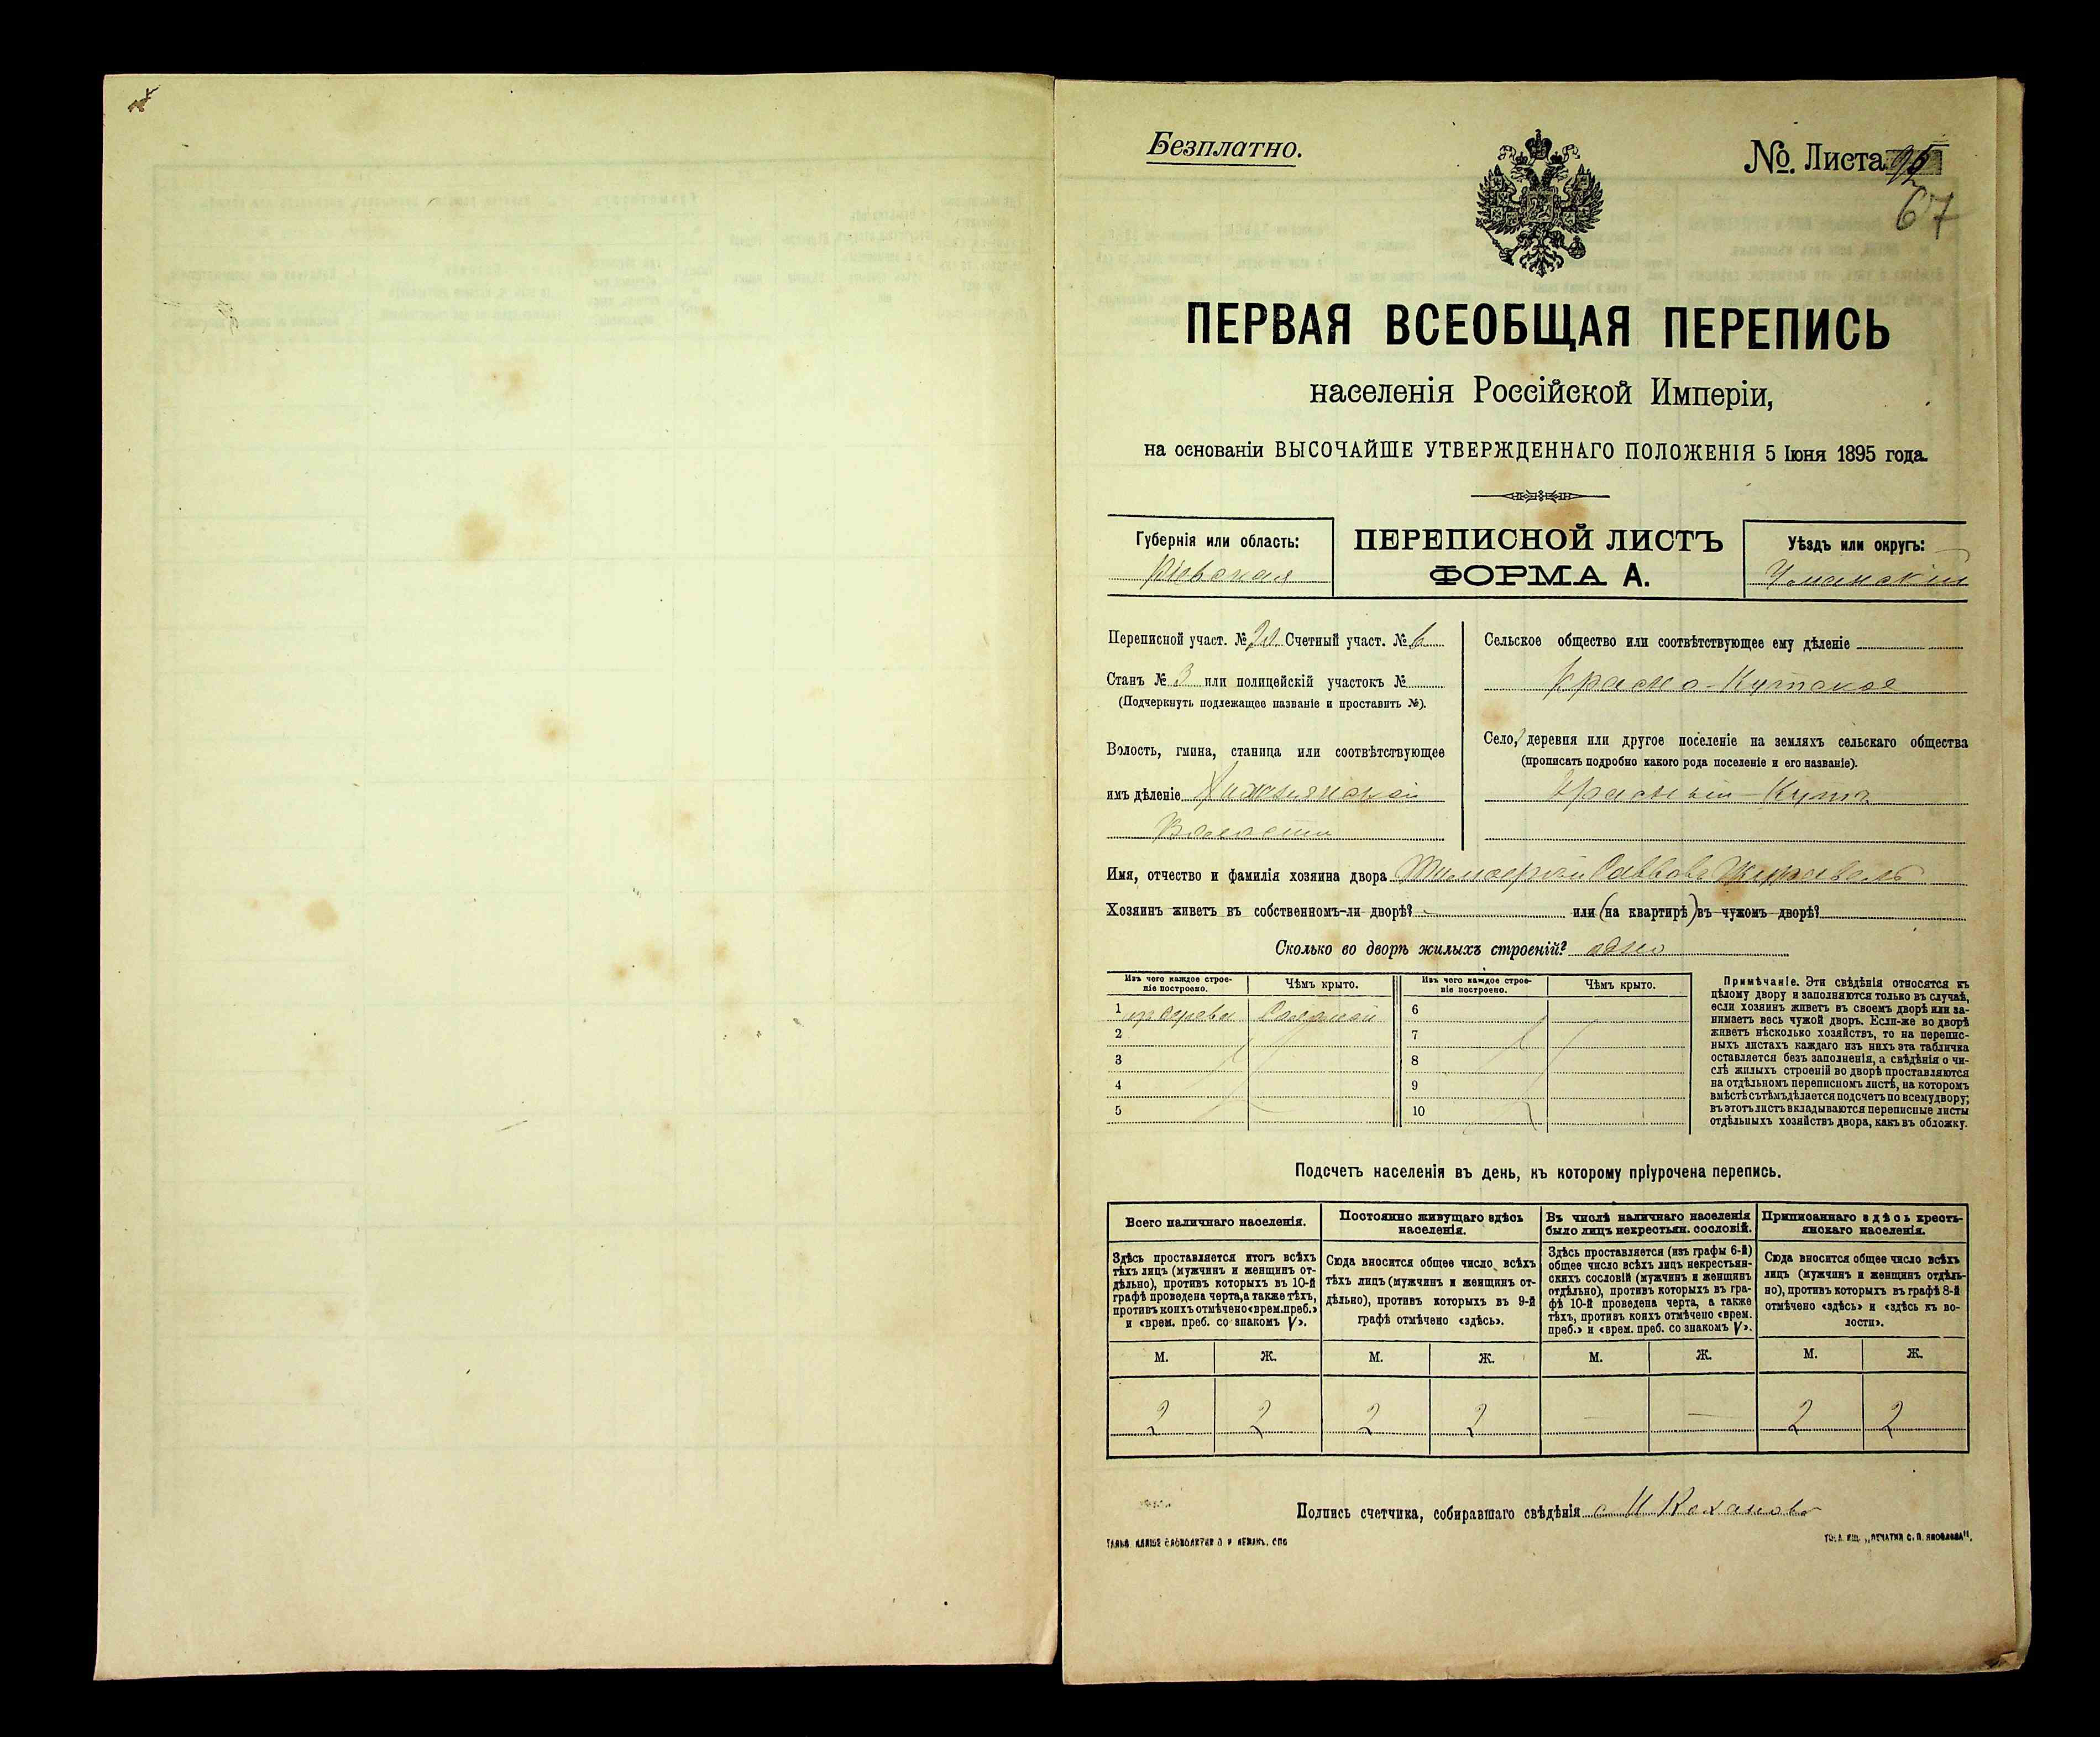 Безплатно.
№ Листа
67
ПЕРВАЯ ВСЕОБЩАЯ ПЕРЕПИСЬ
населенія Россійской Имперіи,
на основаніи ВЫСОЧАЙШЕ УТВЕРЖДЕННАГО ПОЛОЖЕНІЯ 5 Іюня 1895 года.
Губернія или область:
Кіевская
ПЕРЕПИСНОЙ ЛИСТЪ
ФОРМА А.
Уѣздъ или округъ:
Уманскій
Переписной участ. № Счетный участ. № 6
Станъ № 3 или полицейскій участокъ №
(Подчеркнуть подлежащее названіе и проставить №).
Волость, гмина, станица или соотвѣтствующее
имъ дѣленіе
Волости
Сельское общество или соотвѣтствующее ему дѣленіе
Красно-Кутское
Село, деревня или другое поселеніе на земляхъ сельскаго общества
(прописать подробно какого рода поселеніе и его названіе).
Красный-Кутъ
Имя, отчество и фамилія хозяина двора Тимофей Саввовъ Журавель
Хозяинъ живетъ въ собственномъ-ли дворѣ? или (на квартирѣ) въ чужомъ дворѣ?
Сколько во дворѣ жилыхъ строеній? одно
Изъ чего каждое строе-
ніе построено.
Чѣмъ крыто.
1 изъ дерева Соломой
2
3
4
5
Изъ чего каждое строе-
ніе построено.
Чѣмъ крыто.
6
7
8
9
10
Примѣчаніе. Эти свѣдѣнія относятся къ
цѣлому двору и заполняются только въ случаѣ,
если хозяинъ живетъ въ своемъ дворѣ или за-
нимаетъ весь чужой дворъ. Если-же во дворѣ
живетъ нѣсколько хозяйствъ, то на перепис-
ныхъ листахъ каждаго изъ нихъ эта табличка
оставляется безъ заполненія, а свѣдѣнія о чи-
слѣ жилыхъ строеній во дворѣ проставляются
на отдѣльномъ переписномъ листѣ, на которомъ
вмѣстѣ съ тѣмъ дѣлается подсчетъ по всему двору;
въ этотъ листъ вкладываются переписные листы
отдѣльныхъ хозяйствъ двора, какъ въ обложку.
Подсчетъ населенія въ день, къ которому пріурочена перепись.
Всего наличнаго населенія.
Здѣсь проставляется итогъ всѣхъ
тѣхъ лицъ (мужчинъ и женщинъ от-
дѣльно), противъ которыхъ въ 10-й
графѣ проведена черта, а также тѣхъ,
противъ коихъ отмѣчено «врем. преб.»
и «врем. преб. со знакомъ V».
Постоянно живущаго здѣсь
населенія.
Сюда вносится общее число всѣхъ
тѣхъ лицъ (мужчинъ и женщинъ от-
дѣльно), противъ которыхъ въ 9-й
графѣ отмѣчено «здѣсь».
Въ числѣ наличнаго населенія
было лицъ некрестьян. сословій.
Здѣсь проставляется (изъ графы 6-й)
общее число всѣхъ лицъ некрестьян-
скихъ сословій (мужчинъ и женщинъ
отдѣльно), противъ которыхъ въ гра-
фѣ 10-й проведена черта, а также
тѣхъ, противъ коихъ отмѣчено «врем.
преб.» и «врем. преб. со знакомъ V».
Приписаннаго здѣсь кресть-
янскаго населенія.
Сюда вносится общее число всѣхъ
лицъ (мужчинъ и женщинъ отдѣль-
но), противъ которыхъ въ графѣ 8-й
отмѣчено «здѣсь» и «здѣсь къ во-
лости».
М. Ж. М. Ж. М. Ж. М. Ж.
2 2 2 2 — — 2 2
Подпись счетчика, собиравшаго свѣдѣнія